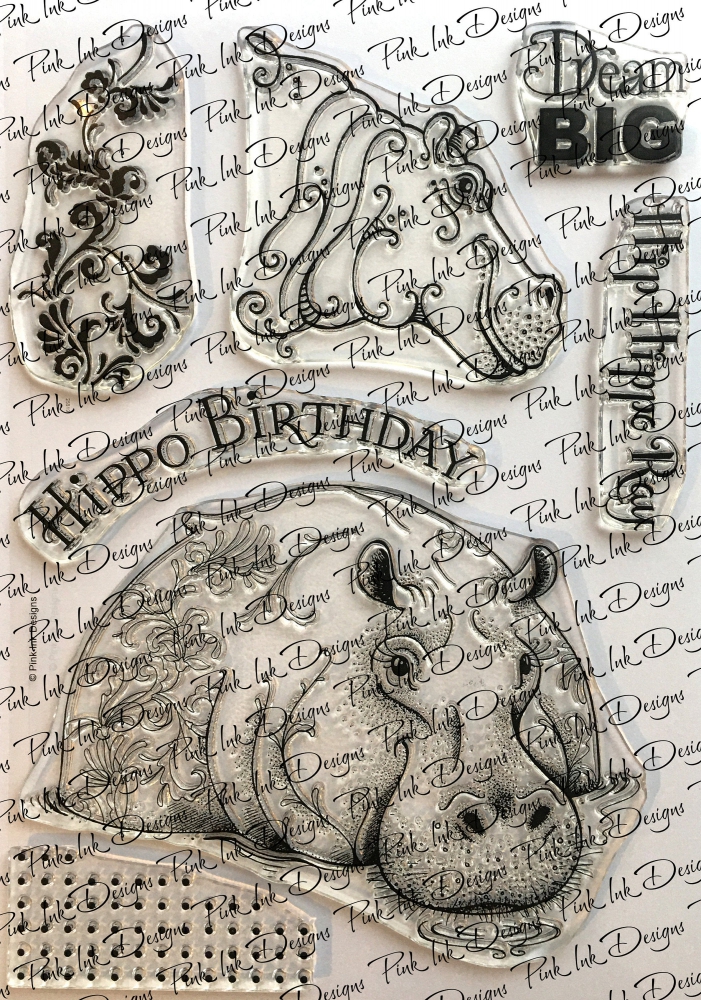 Dream
BIG
Hip Hippo Ray
Hippo Birthday
© Pink Ink Designs
Pink Ink Designs